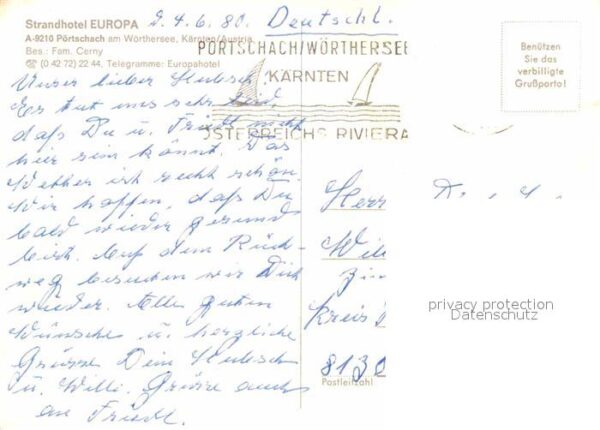 Strandhotel EUROPA
2.4.6.80. Deutschl.
A-9210 Pörtschach am Wörthersee, Kärnten/Austria
Bes.: Fam. Cerny
☎ (0 42 72) 22 44, Telegramme: Europahotel
PÖRTSCHACH/WÖRTHERSEE
KÄRNTEN
ÖSTERREICHS RIVIERA
Benützen
Sie das
verbilligte
Grußporto!
Unser lieber
Es tut uns sehr leid,
daß Du u. Friedl nicht
hier sein könnt. Das
Wetter ist recht schön.
Wir hoffen, daß Du
bald wieder gesund
bist. Auf dem Rück-
weg besuchen wir Dich
wieder. Alle guten
Wünsche u. herzliche
Grüsse Dein
u. Willi. Grüsse auch
an Friedl.
Herr
Wil
Zim
Kreis
8130
Postleitzahl
privacy protection
Datenschutz